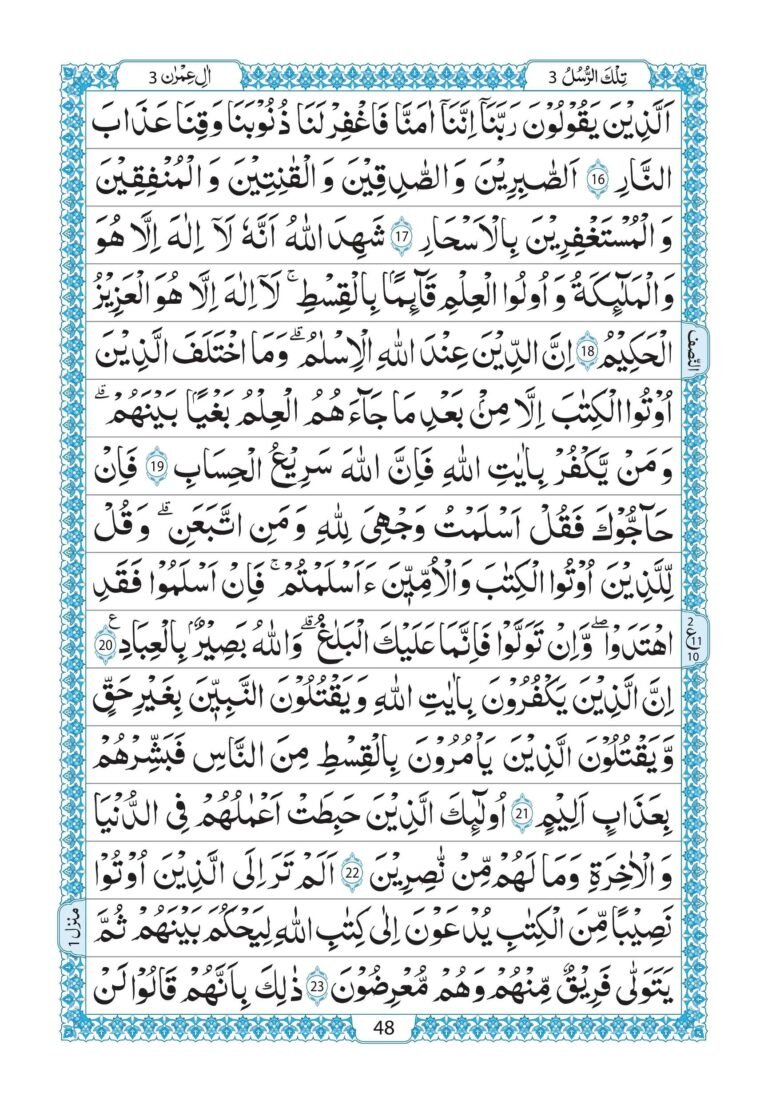 تِلْكَ الرُّسُلُ 3
اٰلِ عِمْرٰن 3
اَلَّذِيْنَ يَقُوْلُوْنَ رَبَّنَاۤ اِنَّنَاۤ اٰمَنَّا فَاغْفِرْ لَنَا ذُنُوْبَنَا وَقِنَا عَذَابَ
النَّارِ 16 اَلصّٰبِرِيْنَ وَالصّٰدِقِيْنَ وَالْقٰنِتِيْنَ وَالْمُنْفِقِيْنَ
وَالْمُسْتَغْفِرِيْنَ بِالْاَسْحَارِ 17 شَهِدَ اللّٰهُ اَنَّهٗ لَاۤ اِلٰهَ اِلَّا هُوَ
وَالْمَلٰٓئِكَةُ وَاُولُوا الْعِلْمِ قَآئِمًۢا بِالْقِسْطِ ۚ لَاۤ اِلٰهَ اِلَّا هُوَ الْعَزِيْزُ
الْحَكِيْمُ 18 اِنَّ الدِّيْنَ عِنْدَ اللّٰهِ الْاِسْلٰمُ ۗ وَمَا اخْتَلَفَ الَّذِيْنَ
النّصف
اُوْتُوا الْكِتٰبَ اِلَّا مِنْۢ بَعْدِ مَا جَآءَهُمُ الْعِلْمُ بَغْيًۢا بَيْنَهُمْ ۗ
وَمَنْ يَّكْفُرْ بِاٰيٰتِ اللّٰهِ فَاِنَّ اللّٰهَ سَرِيْعُ الْحِسَابِ 19 فَاِنْ
حَآجُّوْكَ فَقُلْ اَسْلَمْتُ وَجْهِىَ لِلّٰهِ وَمَنِ اتَّبَعَنِ ۗ وَقُلْ
لِّلَّذِيْنَ اُوْتُوا الْكِتٰبَ وَالْاُمِّيّٖنَ ءَاَسْلَمْتُمْ ۚ فَاِنْ اَسْلَمُوْا فَقَدِ
اهْتَدَوْا ۖ وَّاِنْ تَوَلَّوْا فَاِنَّمَا عَلَيْكَ الْبَلٰغُ ۗ وَاللّٰهُ بَصِيْرٌۢ بِالْعِبَادِ 20 ع
2 ع 11 10
اِنَّ الَّذِيْنَ يَكْفُرُوْنَ بِاٰيٰتِ اللّٰهِ وَيَقْتُلُوْنَ النَّبِيّٖنَ بِغَيْرِ حَقٍّ
وَّيَقْتُلُوْنَ الَّذِيْنَ يَاْمُرُوْنَ بِالْقِسْطِ مِنَ النَّاسِ فَبَشِّرْهُمْ
بِعَذَابٍ اَلِيْمٍ 21 اُولٰٓئِكَ الَّذِيْنَ حَبِطَتْ اَعْمٰلُهُمْ فِى الدُّنْيَا
وَالْاٰخِرَةِ وَمَا لَهُمْ مِّنْ نّٰصِرِيْنَ 22 اَلَمْ تَرَ اِلَى الَّذِيْنَ اُوْتُوْا
نَصِيْبًا مِّنَ الْكِتٰبِ يُدْعَوْنَ اِلٰى كِتٰبِ اللّٰهِ لِيَحْكُمَ بَيْنَهُمْ ثُمَّ
منزل 1
يَتَوَلّٰى فَرِيْقٌ مِّنْهُمْ وَهُمْ مُّعْرِضُوْنَ 23 ذٰلِكَ بِاَنَّهُمْ قَالُوْا لَنْ
48